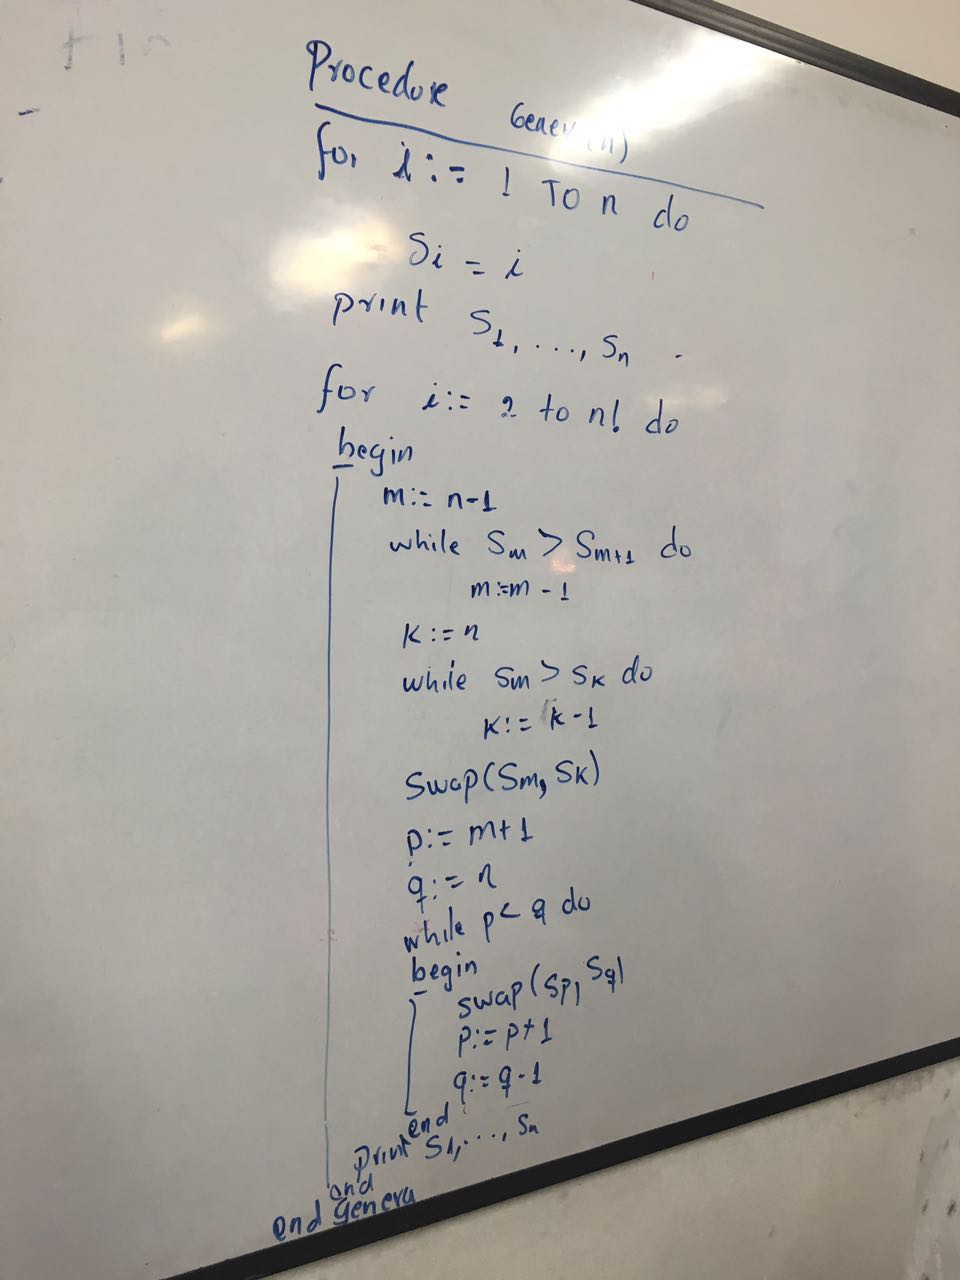 Procedure Gener (n)
for i := 1 TO n do
Si = i
print S1, ..., Sn
for i := 2 to n! do
begin
m := n-1
while Sm > Sm+1 do
m := m - 1
k := n
while Sm > Sk do
k := k-1
Swap(Sm, Sk)
p := m+1
q := n
while p < q do
begin
swap(Sp, Sq)
p := p+1
q := q-1
end
print S1, ..., Sn
end
end Genera